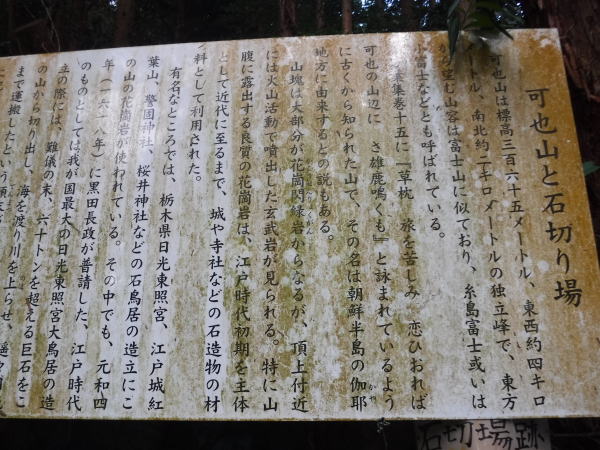 可也山と石切り場
可也山は標高三百六十五メートル、東西約四キロ
メートル、南北約二キロメートルの独立峰で、東方
から望む山容は富士山に似ており、糸島富士或いは
小富士などとも呼ばれている。
葉集巻十五に『草枕 旅を苦しみ 恋ひおれば
可也の山辺に さ雄鹿鳴くも』と詠まれているよう
に古くから知られた山で、その名は朝鮮半島の伽耶
地方に由来するとの説もある。
山塊は大部分が花崗閃緑岩からなるが、頂上付近
には火山活動で噴出した玄武岩が見られる。特に山
腹に露出する良質の花崗岩は、江戸時代初期を主体
として近代に至るまで、城や寺社などの石造物の材
料として利用された。
有名なところでは、栃木県日光東照宮、江戸城紅
葉山、警固神社、桜井神社などの石鳥居の造立にこ
の山の花崗岩が使われている。その中でも、元和四
年(一六一八年)に黒田長政が普請した、江戸時代
のものとしては我が国最大の日光東照宮大鳥居の造
立の際には、難儀の末、六十トンを超える巨石をこ
の山から切り出し、海を渡り川を上らせ、遥
まで運搬したという
石切場跡